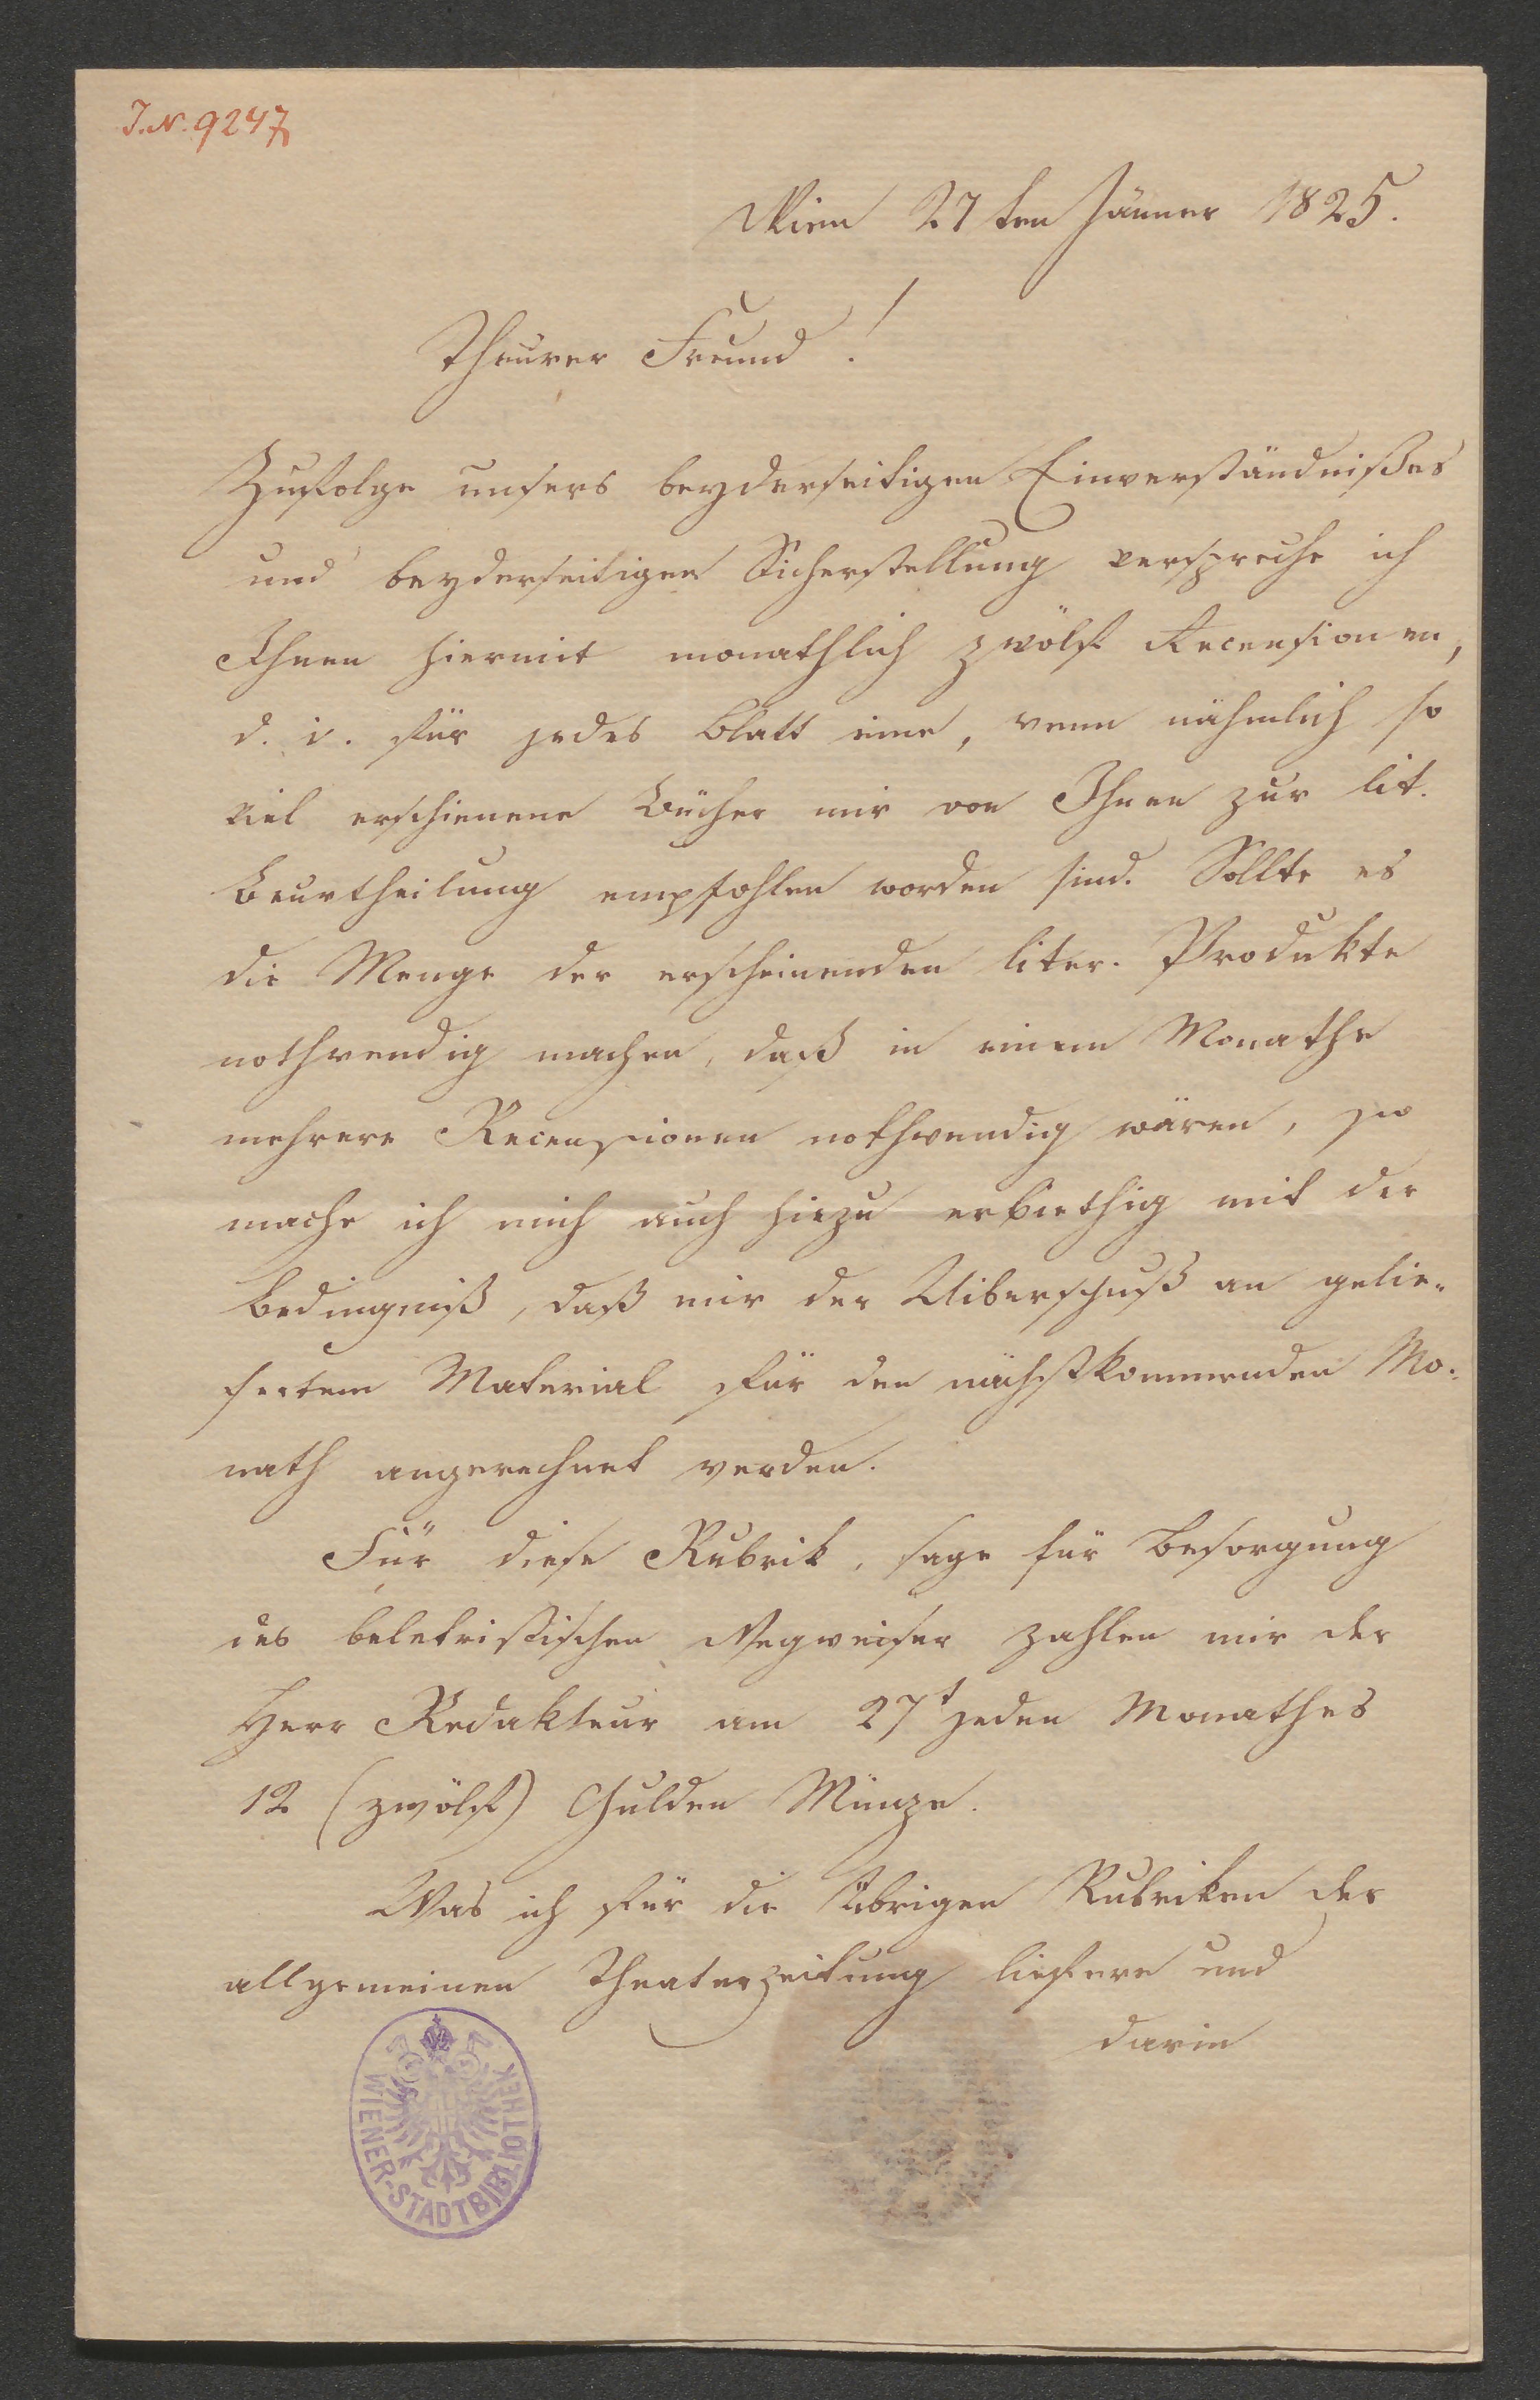 J.N. 9247
Wien 27ten Jänner 1825.
Theurer Freund!
Zufolge unsers beyderseitigen Einverständnißes
und beyderseitigen Sicherstellung verspreche ich
Ihnen hiermit monathlich zwölf Recensionen,
d. i. für jedes Blatt eine, wenn nähmlich so
viel erschienene Bücher mir von Ihnen zur lit.
Beurtheilung empfohlen worden sind. Sollte es
die Menge der erscheinenden liter. Produkte
nothwendig machen, daß in einem Monathe
mehrere Recensionen nothwendig wären, so
mache ich mich auch hiezu erbiethig mit der
Bedingniß, daß mir der Uiberschuß an gelie-
fertem Material für den nächstkommenden Mo-
nath angerechnet werden.
Für diese Rubrik, sage für Besorgung
des beletristischen Wegweiser zahlen mir der
Herr Redakteur am 27t jeden Monathes
12 (zwölf) Gulden Münze.
Was ich für die übrigen Rubriken der
allgemeinen Theaterzeitung liefere und
darin
WIENER-STADTBIBLIOTHEK